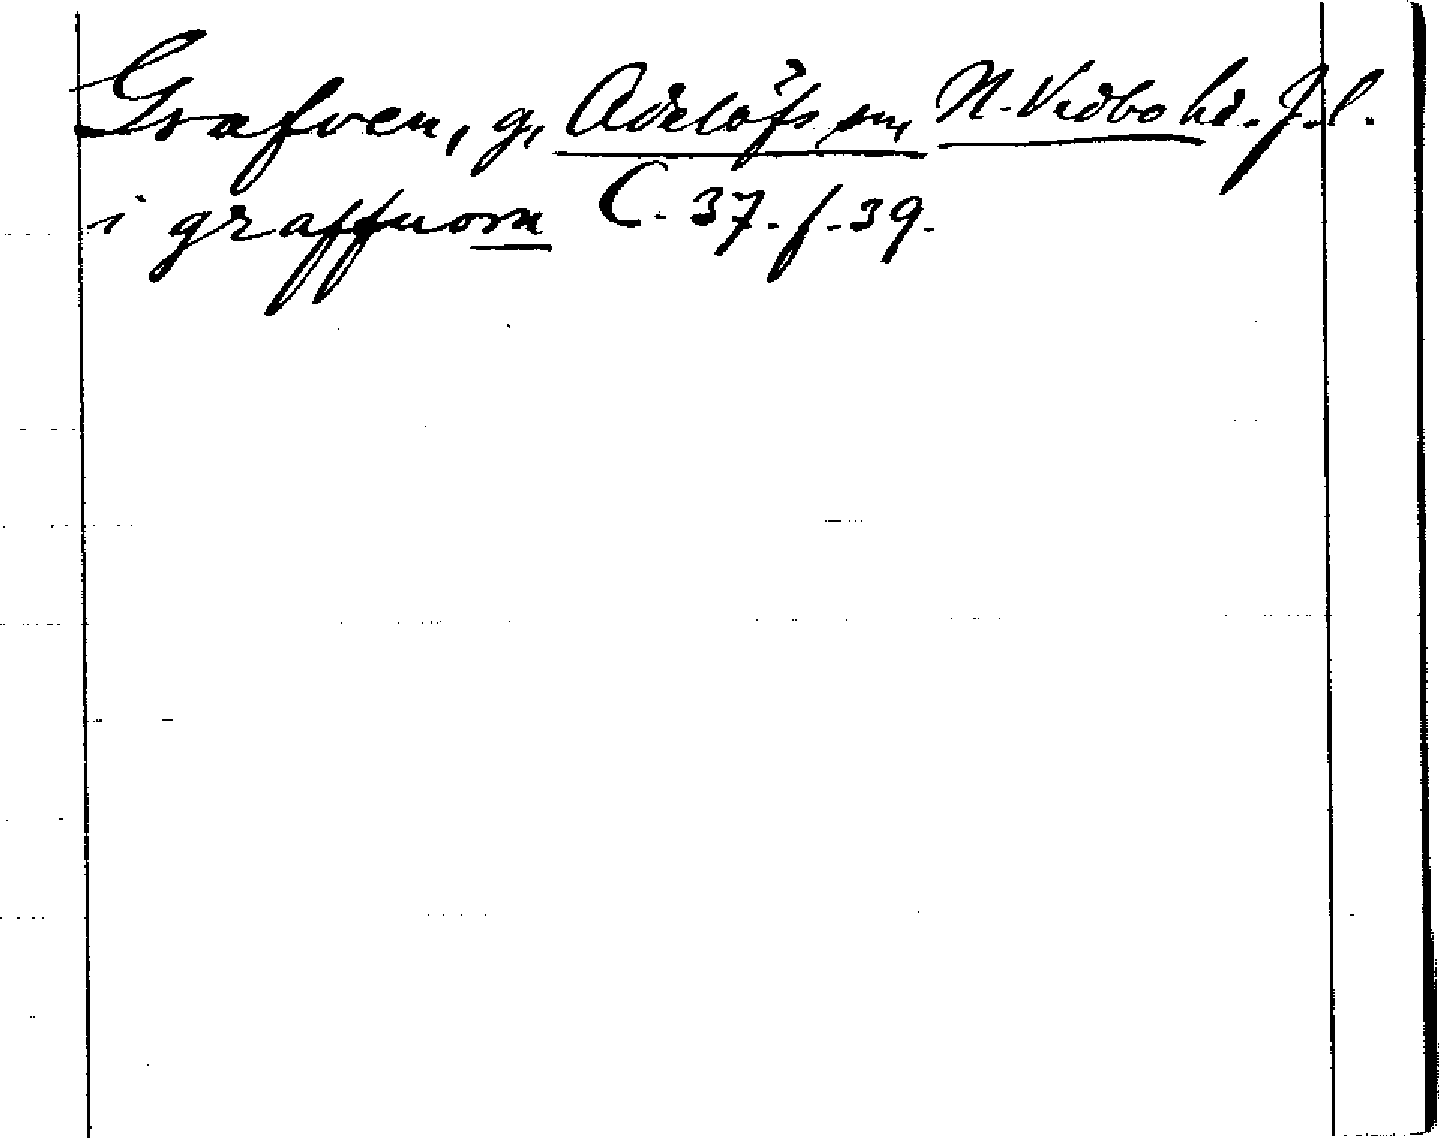 Grafven, g, Adelöfs sn, N. Vedbo hd. J.l.
i graffuom C. 37. f. 39.